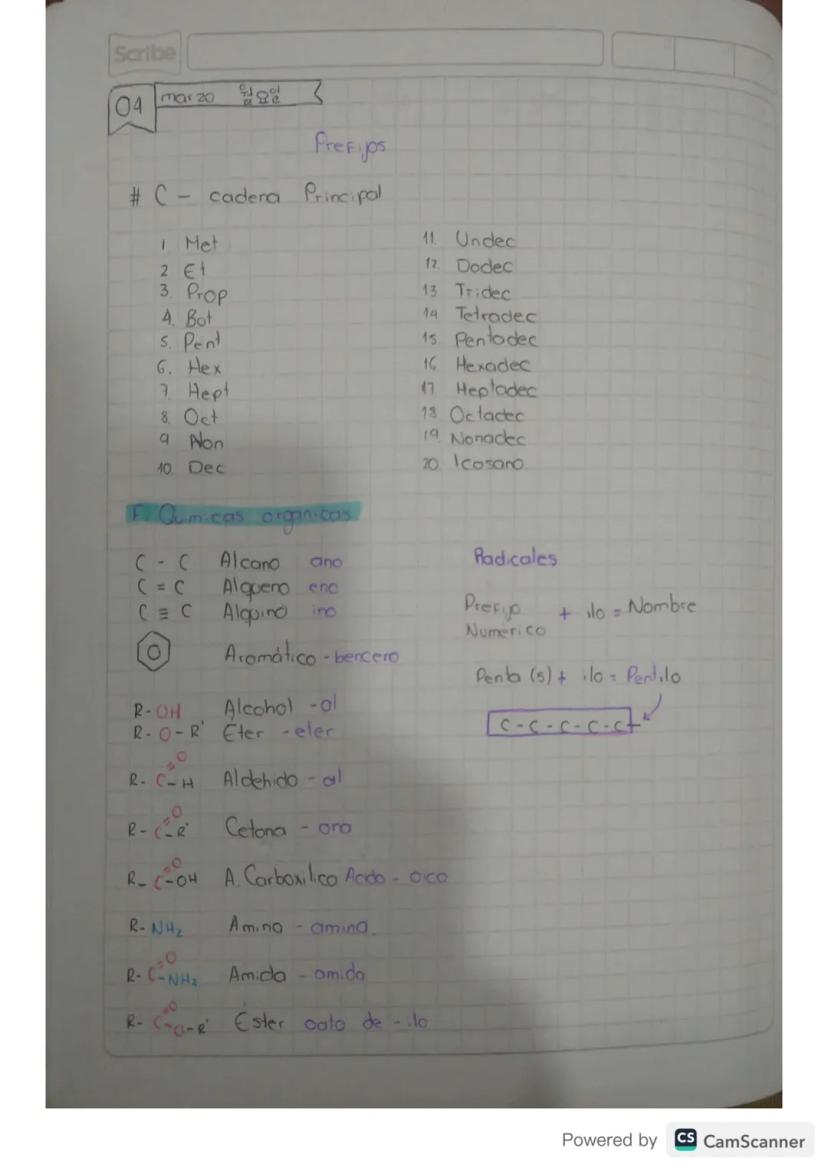 Scribe
04 marzo 월요일
Prefijos
# C - cadena Principal
1. Met
2 Et
3. Prop
4. Bot
5. Pent
6. Hex
7. Hept
8. Oct
9 Non
10. Dec
11. Undec
12. Dodec
13 Tridec
14 Tetradec
15 Pentadec
16 Hexadec
17 Heptadec
18 Octadec
19. Nonadec
20 Icosano.
F. Quimicas organicas
C - C Alcano ano
C = C Alqueno eno
C ≡ C Alquino ino
Aromático - benceno
R-OH Alcohol -ol
R-O-R' Eter -eter
O
R-C-H Aldehido - al
O
R-C-R' Cetona - ona
O
R-C-OH A. Carboxilico Acido - oico
R-NH₂ Amina - amina.
O
R-C-NH₂ Amida - amida
O
R-C-O-R' Éster oato de -ilo
Radicales
Prefijo + ilo = Nombre
Numerico
Penta (5) + ilo = Pentilo
C-C-C-C-C
Powered by CS CamScanner